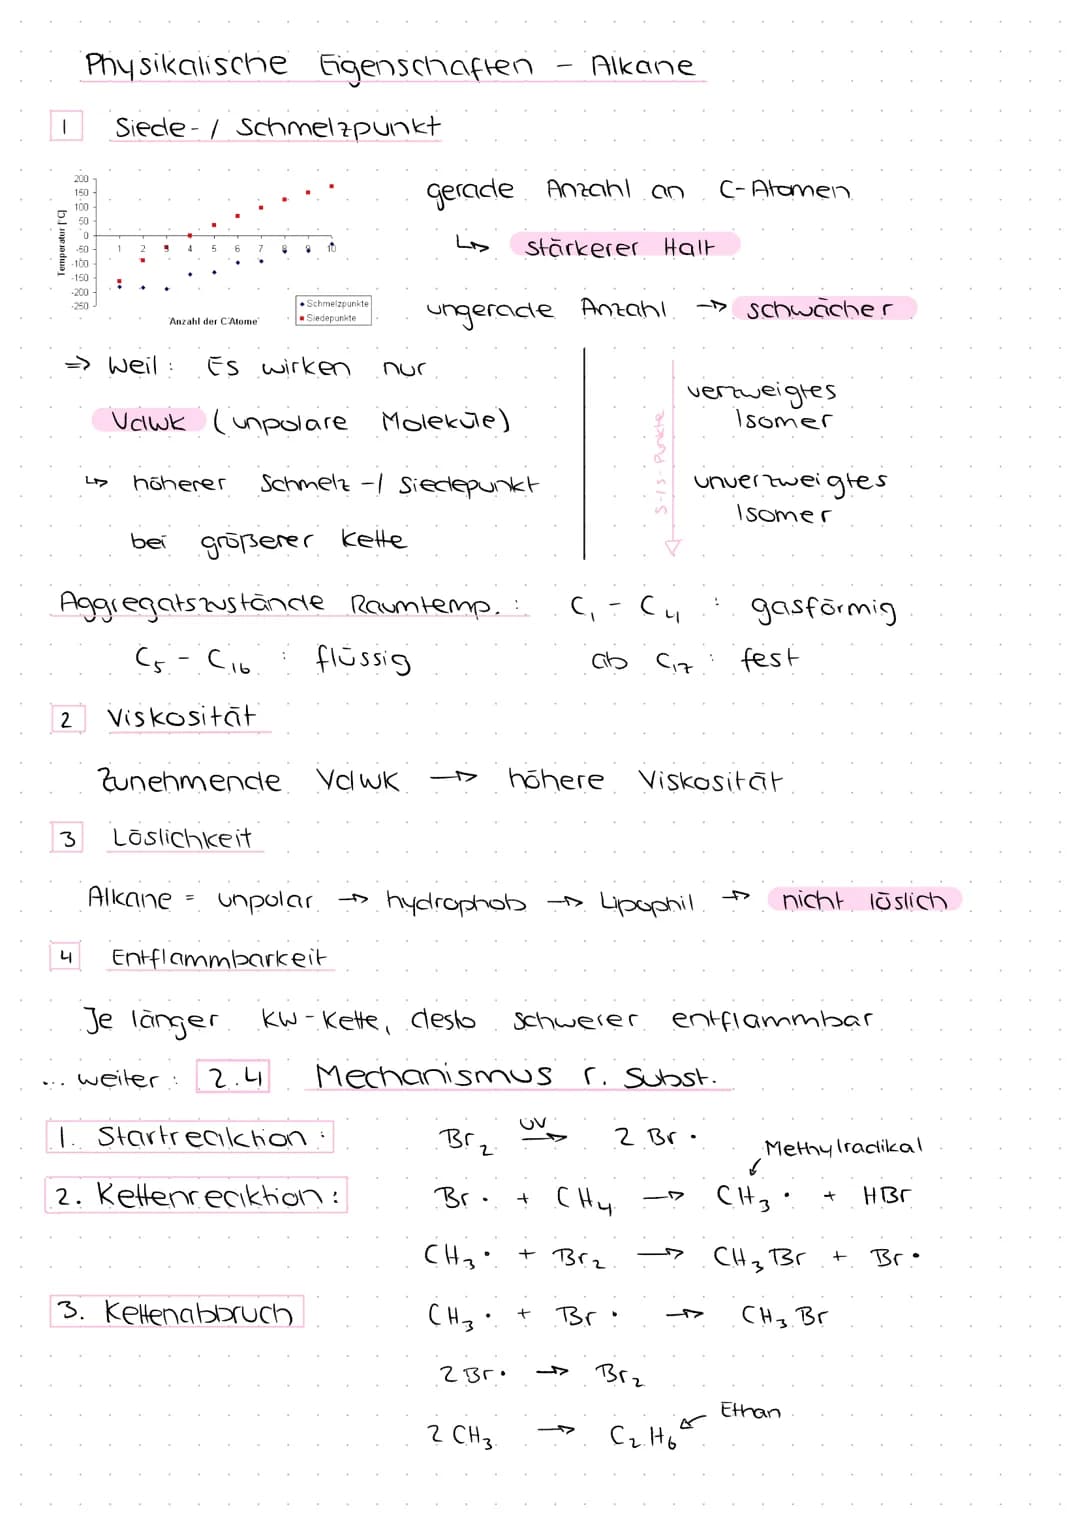 Physikalische Eigenschaften - Alkane
1 Siede- / Schmelzpunkt
200
150
100
50
0
-50
-100
-150
-200
-250
Temperatur [°C]
1 2 3 4 5 6 7 8 9 10
Anzahl der C-Atome
Schmelzpunkte
Siedepunkte
gerade Anzahl an C-Atomen
↳ stärkerer Halt
ungerade Anzahl → schwächer
=> Weil : Es wirken nur
Vdwk (unpolare Moleküle)
↳ höherer Schmelz-/ Siedepunkt
bei größerer Kette
S-/S-Punkte
verzweigtes
Isomer
unverzweigtes
Isomer
Aggregatszustände Raumtemp. : C₁ - C₄ : gasförmig
C₅ - C₁₆ : flüssig ab C₁₇ : fest
2 Viskosität
Zunehmende Vdwk → höhere Viskosität
3 Löslichkeit
Alkane = unpolar → hydrophob → Lipophil → nicht löslich
4 Entflammbarkeit
Je länger KW-Kette, desto schwerer entflammbar
... weiter : 2.4 Mechanismus r. Subst.
1. Startreaktion : Br₂ UV→ 2 Br •
Methylradikal
2. Kettenreaktion : Br • + CH₄ → CH₃ • + HBr
CH₃ • + Br₂ → CH₃Br + Br •
3. Kettenabbruch CH₃ • + Br • → CH₃Br
2 Br • → Br₂
Ethan
2 CH₃ → C₂H₆